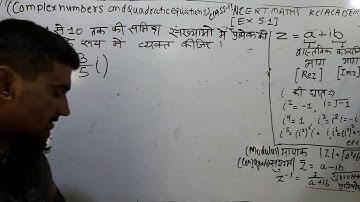 (Complex numbers and Quadratic Equations), class-11 NCERT MATHS KCl ACADEMY
[EX 5.1]
से 10 तक की सम्मिश्र संख्याओं में प्रत्येक को
के रूप में व्यक्त कीजिए।
3/5 ( )
z = a + ib
वास्तविक काल्पनिक
भाग भाग
[Re z] [Im z]
i की घात ⇒
i² = -1, i = √-1
i⁴ = 1, i³ = i²·i = -i
etc
(Modulus) मापांक |z| =
z̄ = a - ib
z⁻¹ = 1/a+ib